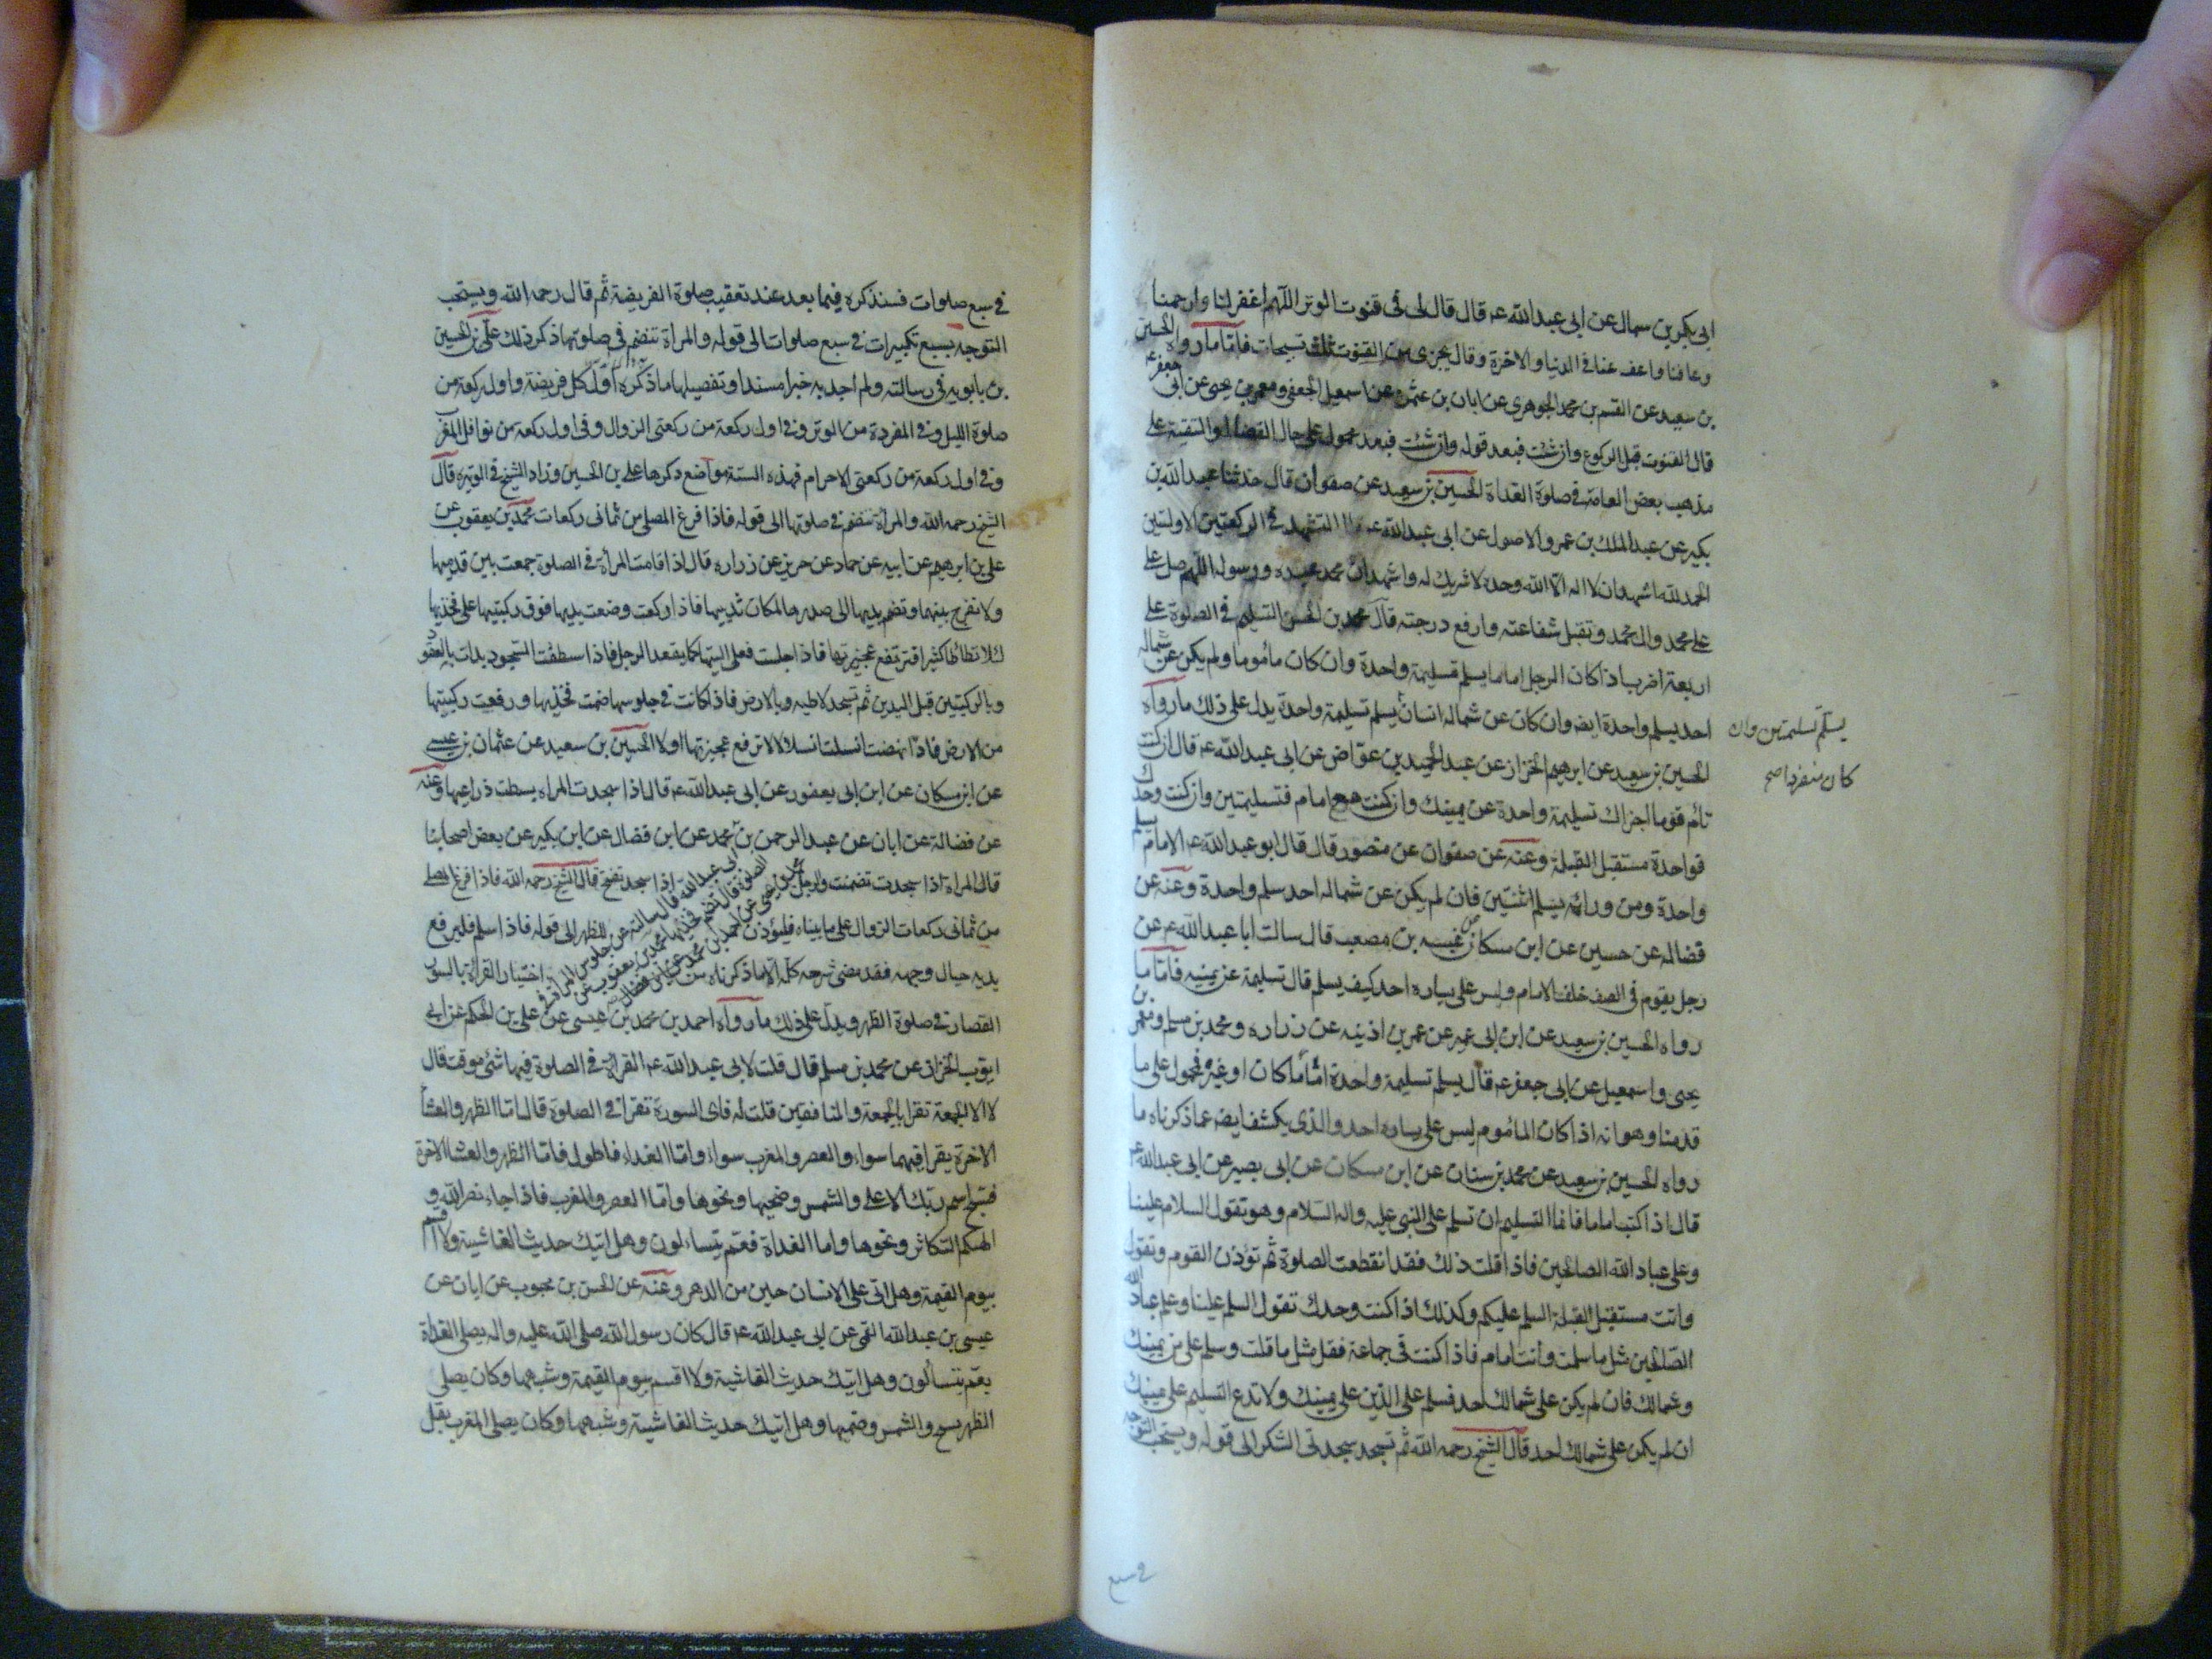 ابى بكر بن سمال عن ابى عبد الله عم قال قال لى فى قنوت الوتر اللهم اغفر لنا وارحمنا
وعافنا واعف عنا فى الدنيا والاخرة وقال يجزى من القنوت ثلث تسبيحات فاما ما رواه الحسين
بن سعيد عن القسم بن محمد الجوهرى عن ابان بن عثمن عن اسمعيل الجعفى ومعمر بن يحيى عن ابى جعفر عم
قال القنوت قبل الركوع وان شئت فبعد قوله وان شئت فبعد محمول على حال القضا او التقية على
مذهب بعض العامة فى صلوة الغداة الحسين بن سعيد عن صفوان قال حدثنا عبد الله بن
بكير عن عبد الملك بن عمرو الاصول عن ابى عبد الله عم التشهد فى الركعتين الاولتين
الحمد لله اشهد ان لا اله الا الله وحده لا شريك له واشهد ان محمد عبده ورسوله اللهم صل على
على محمد وال محمد وتقبل شفاعته وارفع درجته قال محمد بن الحسن التسليم فى الصلوة على
اربعة اضرب اذا كان الرجل اماما يسلم تسليمة واحدة وان كان مأموما ولم يكن عن شماله
احد يسلم واحدة ايضا وان كان عن شماله انسان يسلم تسليمة واحدة يدل على ذلك ما رواه
يسلم تسليمتين وان
كان منفردا صح
الحسين بن سعيد عن ابرهيم الخزاز عن عبد الحميد بن عواض عن ابى عبد الله عم قال ان كنت
تائم قوما اجزاك تسليمة واحدة عن يمينك وان كنت مع امام فتسليمتين وان كنت وحدك
فواحدة مستقبل القبلة وعنه عن صفوان عن منصور قال قال ابو عبد الله عم الامام يسلم
واحدة ومن ورائه يسلم اثنتين فان لم يكن عن شماله احد سلم واحدة وعنه عن
فضاله عن حسين عن ابن مسكان عن عنبسه بن مصعب قال سالت ابا عبد الله عم عن
رجل يقوم فى الصف خلف الامام وليس على يساره احد كيف يسلم قال تسليمة عن يمينه فاما ما
رواه الحسين بن سعيد عن ابن ابى عمير عن عمر بن اذينه عن زراره ومحمد بن مسلم ومعمر بن
يحيى واسمعيل عن ابى جعفر عم قال يسلم تسليمة واحدة اماما كان او غيره فمحمول على ما
قدمنا وهو انه اذا كان المأموم ليس على يساره احد والذى يكشف ايضا عما ذكرناه ما
رواه الحسين بن سعيد عن محمد بن سنان عن ابن مسكان عن ابى بصير عن ابى عبد الله عم
قال اذا كنت اماما فانما التسليم ان تسلم على النبى عليه واله السلام وهو تقول السلام علينا
وعلى عباد الله الصالحين فاذا قلت ذلك فقد انقطعت الصلوة ثم تؤذن القوم وتقول
وانت مستقبل القبلة السلم عليكم وكذلك اذا كنت وحدك تقول السلم علينا وعلى عباد الله
الصالحين مثل ما سلمت وانت امام فاذا كنت فى جماعة فقل مثل ما قلت وسلم على من يمينك
وشمالك فان لم يكن على شمالك احد فسلم على الذين على يمينك ولا تدع التسليم على يمينك
ان لم يكن على شمالك احد قال الشيخ رحمه الله ثم تسجد سجدتى الشكر الى قوله ويستحب التوجه
فى سبع
فى سبع صلوات فسنذكره فيما بعد عند تعقيب صلوة الفريضة ثم قال رحمه الله ويستحب
التوجه بسبع تكبيرات فى سبع صلوات الى قوله والمراة تنضم فى صلوتها ذكر ذلك على بن الحسين
بن بابويه فى رسالته ولم اجد به خبرا مسندا وتفصيلها ما ذكره اول كل فريضة واول ركعة من
صلوة الليل وفى المفردة من الوتر وفى اول ركعة من ركعتى الزوال وفى اول ركعة من نوافل المغرب
وفى اول ركعة من ركعتى الاحرام فهذه الستة مواضع ذكرها على بن الحسين وزاد الشيخ فى الوتيره قال
الشيخ رحمه الله والمراة تنضم فى صلوتها الى قوله فاذا فرغ المصلى من ثمانى ركعات محمد بن يعقوب عن
على بن ابرهيم عن ابيه عن حماد عن حريز عن زراره قال اذا قامت المرأة فى الصلوة جمعت بين قدميها
ولا تفرج بينهما وتضم يديها الى صدرها لمكان ثدييها فاذا ركعت وضعت يديها فوق ركبتيها على فخذيها
لئلا تطأطأ كثيرا فترتفع عجيزتها فاذا جلست فعلى اليتيها كما يقعد الرجل فاذا سقطت للسجود بدات بالقعود
وبالركبتين قبل اليدين ثم تسجد لاطيه بالارض فاذا كانت فى جلوسها ضمت فخذيها ورفعت ركبتيها
من الارض فاذا نهضت انسلت انسلالا لا ترفع عجيزتها اولا الحسين بن سعيد عن عثمان بن عيسى
عن ابن مسكان عن ابن ابى يعفور عن ابى عبد الله عم قال اذا سجدت المراه بسطت ذراعيها وعنه
عن فضالة عن ابان عن عبد الرحمن بن محمد عن ابن فضال عن ابن بكير عن بعض اصحابنا
قال المراه اذا سجدت تضممت والرجل اذا سجد تفتح قال الشيخ رحمه الله فاذا فرغ المصلى
من ثمانى ركعات الزوال على ما بيناه فليؤذن للظهر الى قوله فاذا سلم فليرفع
يديه حيال وجهه فقد مضى شرحه كله الا ما ذكرناه من اختيار القراة بالسور
القصار فى صلوة الظهر ويدل على ذلك ما رواه احمد بن محمد بن عيسى عن على بن الحكم عن ابى
ايوب الخزاز عن محمد بن مسلم قال قلت لابى عبد الله عم القرائة فى الصلوة فيها شئ موقت قال
لا الا الجمعة تقرا بالجمعة والمنافقين قلت له فاى السورة تقرا فى الصلوة قال اما الظهر والعشأ
الاخرة يقرا فيهما سواء والعصر والمغرب سواء واما الغداء فاطول فاما الظهر والعشا الاخرة
فسبح اسم ربك الاعلى والشمس وضحيها ونحوها واما العصر والمغرب فاذا جاء نصر الله و
الهيكم التكاثر ونحوها واما الغداة فعم يتساءلون وهل اتيك حديث الغاشية ولا اقسم
بيوم القيمة وهل اتى على الانسان حين من الدهر وعنه عن الحسن بن محبوب عن ابان عن
عيسى بن عبد الله القمى عن ابى عبد الله عم قال كان رسول الله صلى الله عليه واله يصلى الغداة
بعم يتسألون وهل اتيك حديث الغاشية ولا اقسم بيوم القيمة وشبهها وكان يصلى
الظهر بسبح والشمس وضحيها وهل اتيك حديث الغاشية وشبهها وكان يصلى المغرب بقل